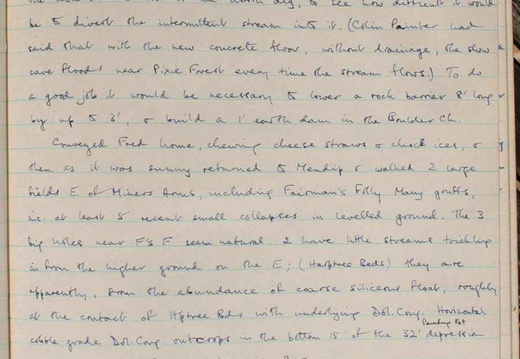 to see how difficult it would
be to divert the intermittent stream into it. (Colin Painter had
said that with the new concrete floor, without drainage, the show
cave floods near Pixie Forest every time the stream flows.) To do
a good job it would be necessary to lower a rock barrier 8' long
by up to 3', & build a 1' earth dam in the Boulder Ch.
Conveyed Fred home, chewing cheese straws & choc ices, &
then as it was sunny returned to Mendip & walked 2 large
fields E of Miners Arms, including Fairman's Folly. Many gruffs,
ie. at least 5 recent small collapses in levelled ground. The 3
big holes near F's F seem natural. 2 have little streams trickling
in from the higher ground on the E; (Harptree Beds) they are
apparently, from the abundance of coarse siliceous float, roughly
at the contact of Hptree Bds with underlying Dol. Cong. Horizontal
cobble-grade Dol. Cong. outcrops in the bottom 15' of the 32' depression